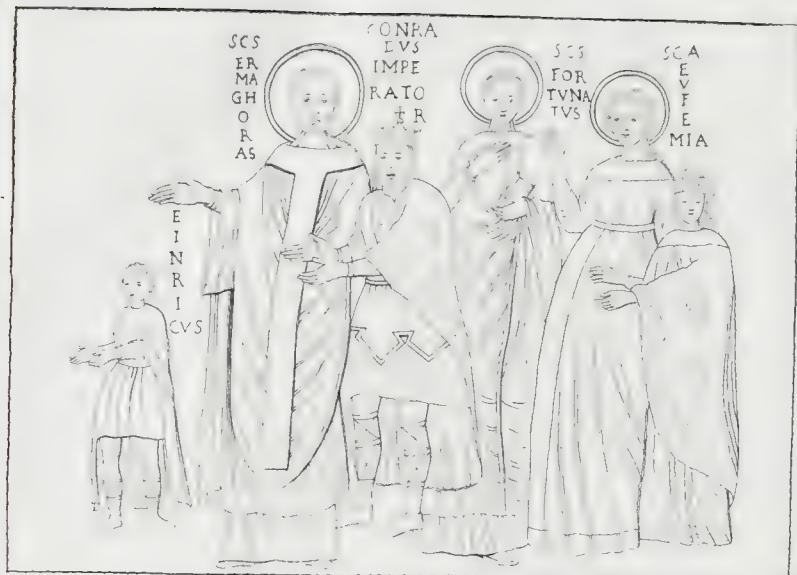 SCS
ER
MA
GH
O
R
AS
CONRA
DVS
IMPE
RATO
‡R
SCS
FOR
TVNA
TVS
SCA
E
V
F
E
MIA
E
I
N
R
I
CVS